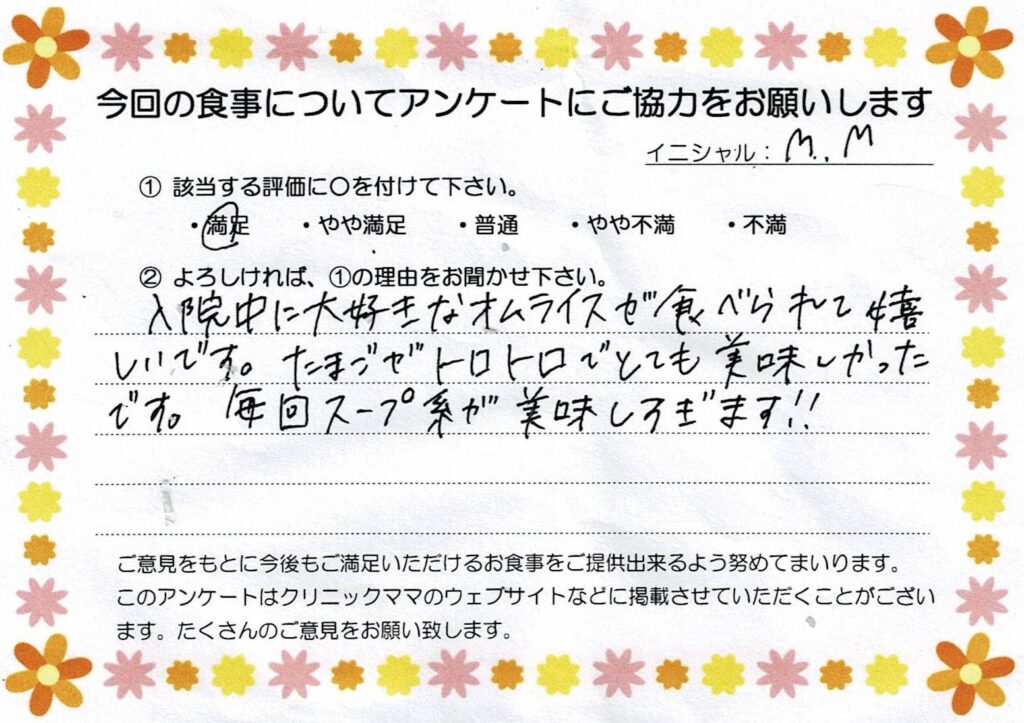 今回の食事についてアンケートにご協力をお願いします
イニシャル： M.M
① 該当する評価に○を付けて下さい。
・満足 ・やや満足 ・普通 ・やや不満 ・不満
② よろしければ、①の理由をお聞かせ下さい。
入院中に大好きなオムライスが食べられて嬉
しいです。たまごがトロトロでとても美味しかった
です。毎回スープ系が美味しすぎます!!
ご意見をもとに今後もご満足いただけるお食事をご提供出来るよう努めてまいります。
このアンケートはクリニックママのウェブサイトなどに掲載させていただくことがござい
ます。たくさんのご意見をお願い致します。